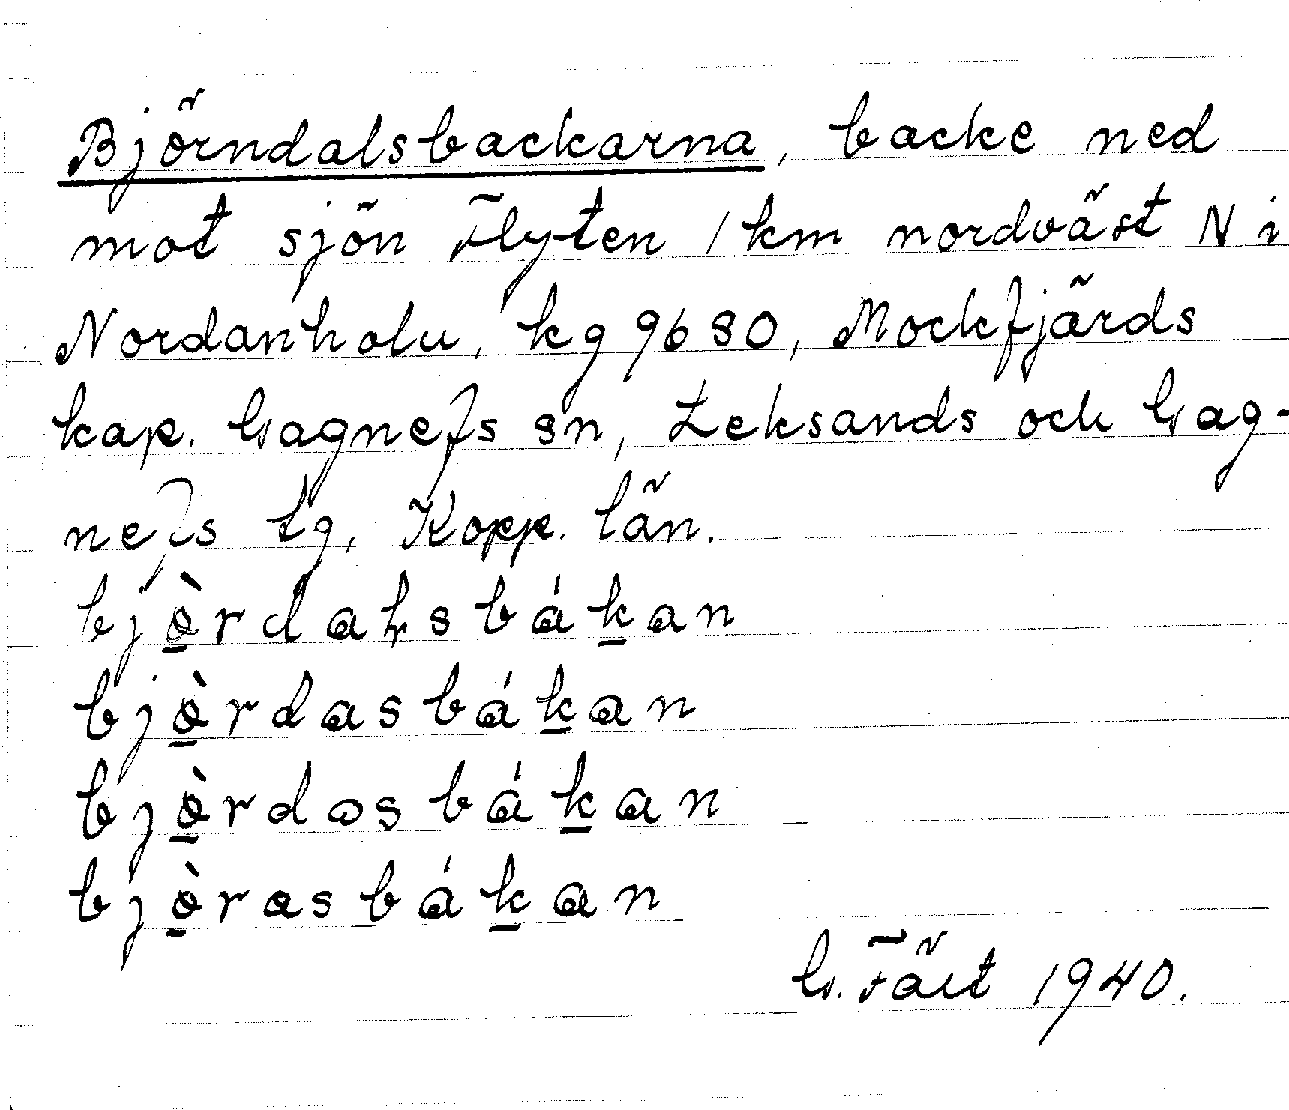 Björndalsbackarna, backe ned
mot sjön Flyten 1 km nordväst N i
Nordanholu, kg 9680, Mockfjärds
kap. Gagnefs sn, Leksands och Gag-
nefs tg, Kopp. län.
bjö̀rdaḷsbákan
bjö̀rdasbákan
bjö̀rdasbákan
bjö̀rasbákan
G. Fält 1940.